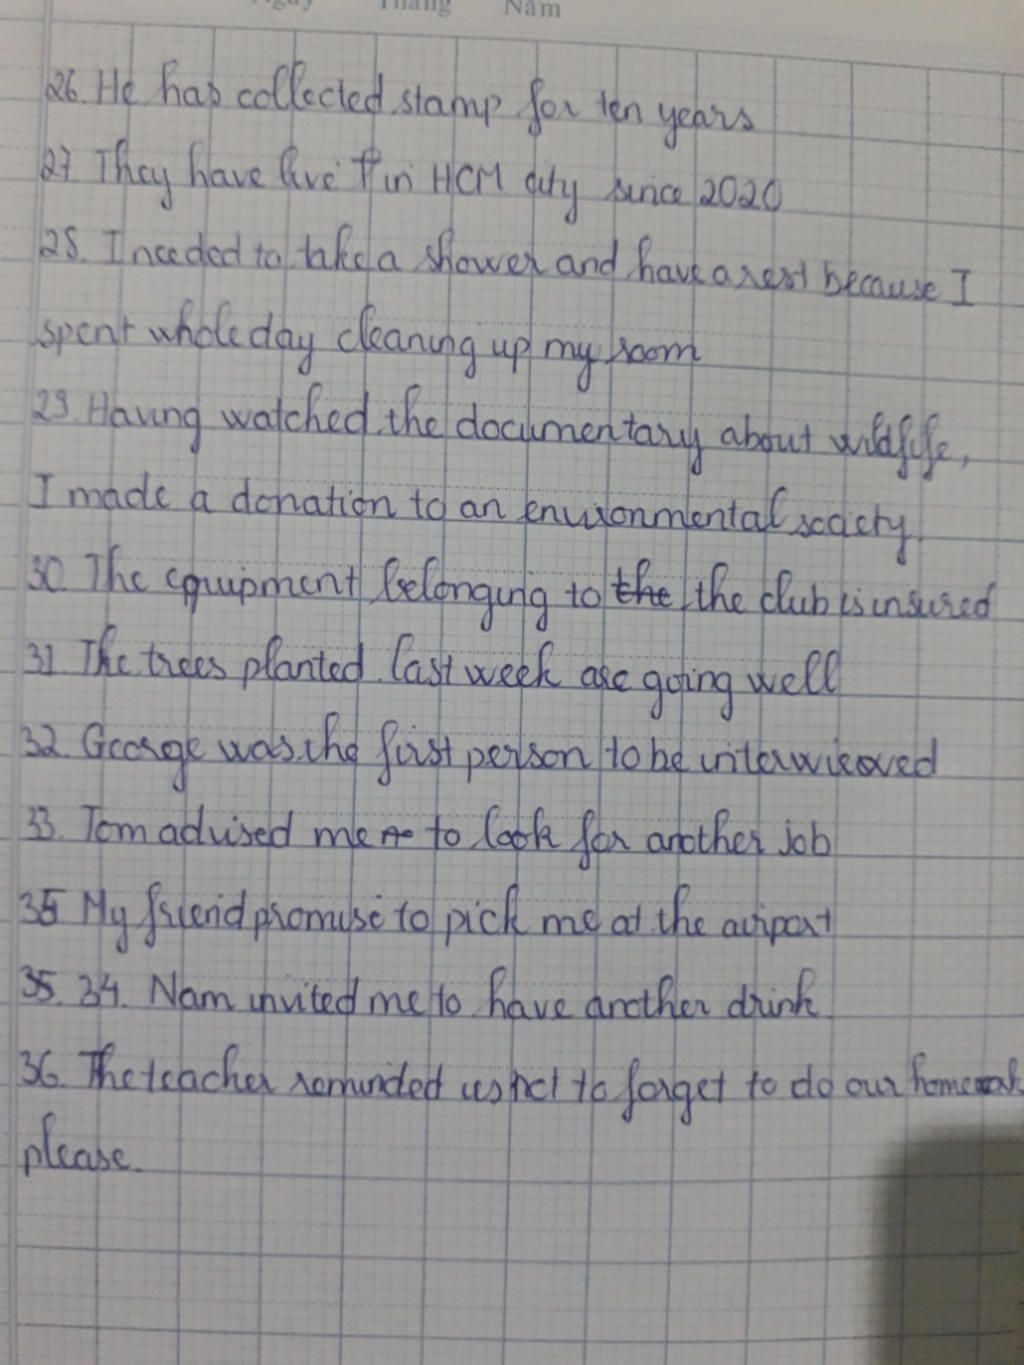 Ngày Tháng Năm
26. He has collected stamp for ten years
27 They have live in HCM city since 2020
28. I needed to take a shower and have a rest because I
spent whole day cleaning up my room
29. Having watched the documentary about wildlife,
I made a donation to an environmental society
30 The equipment belonging to the the club is insured
31 The trees planted last week are going well
32 George was the first person to be interwieved
33. Tom advised me to look for another job
35 My friend promise to pick me at the airport
35. 34. Nam invited me to have another drink
36. The teacher reminded us not to forget to do our homework
please.